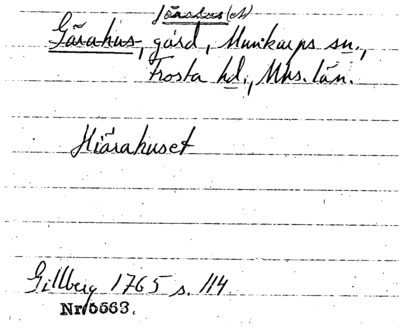 Gårahus, gård, Munkarps sn.,
Frosta hd., Mhs. län.
Hiärahuset
Gillberg 1765 s. 114.
Nr 5663.